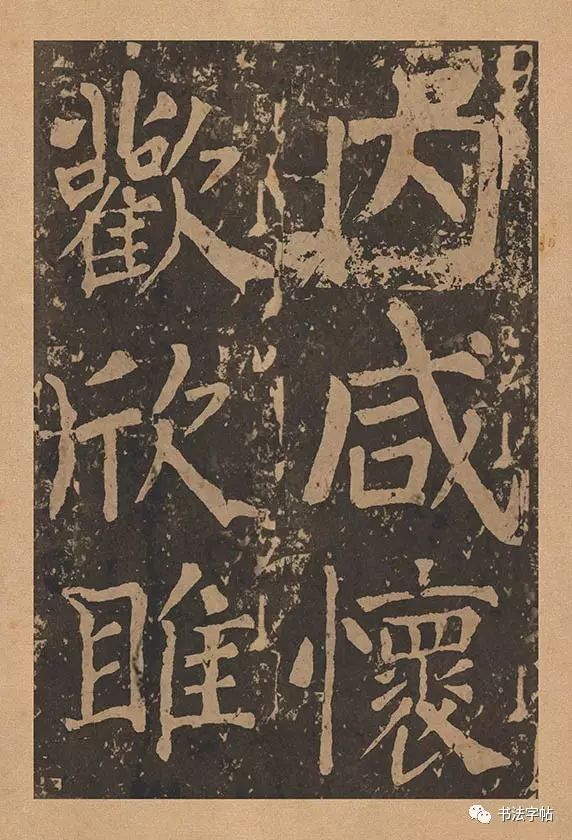 内咸懷
歡欣睢
书法字帖